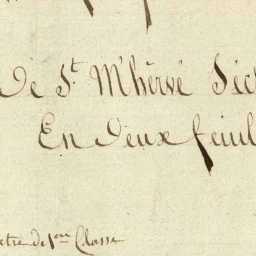 De St. M'hervé
En Deux feuil
etre de 1ere Classe